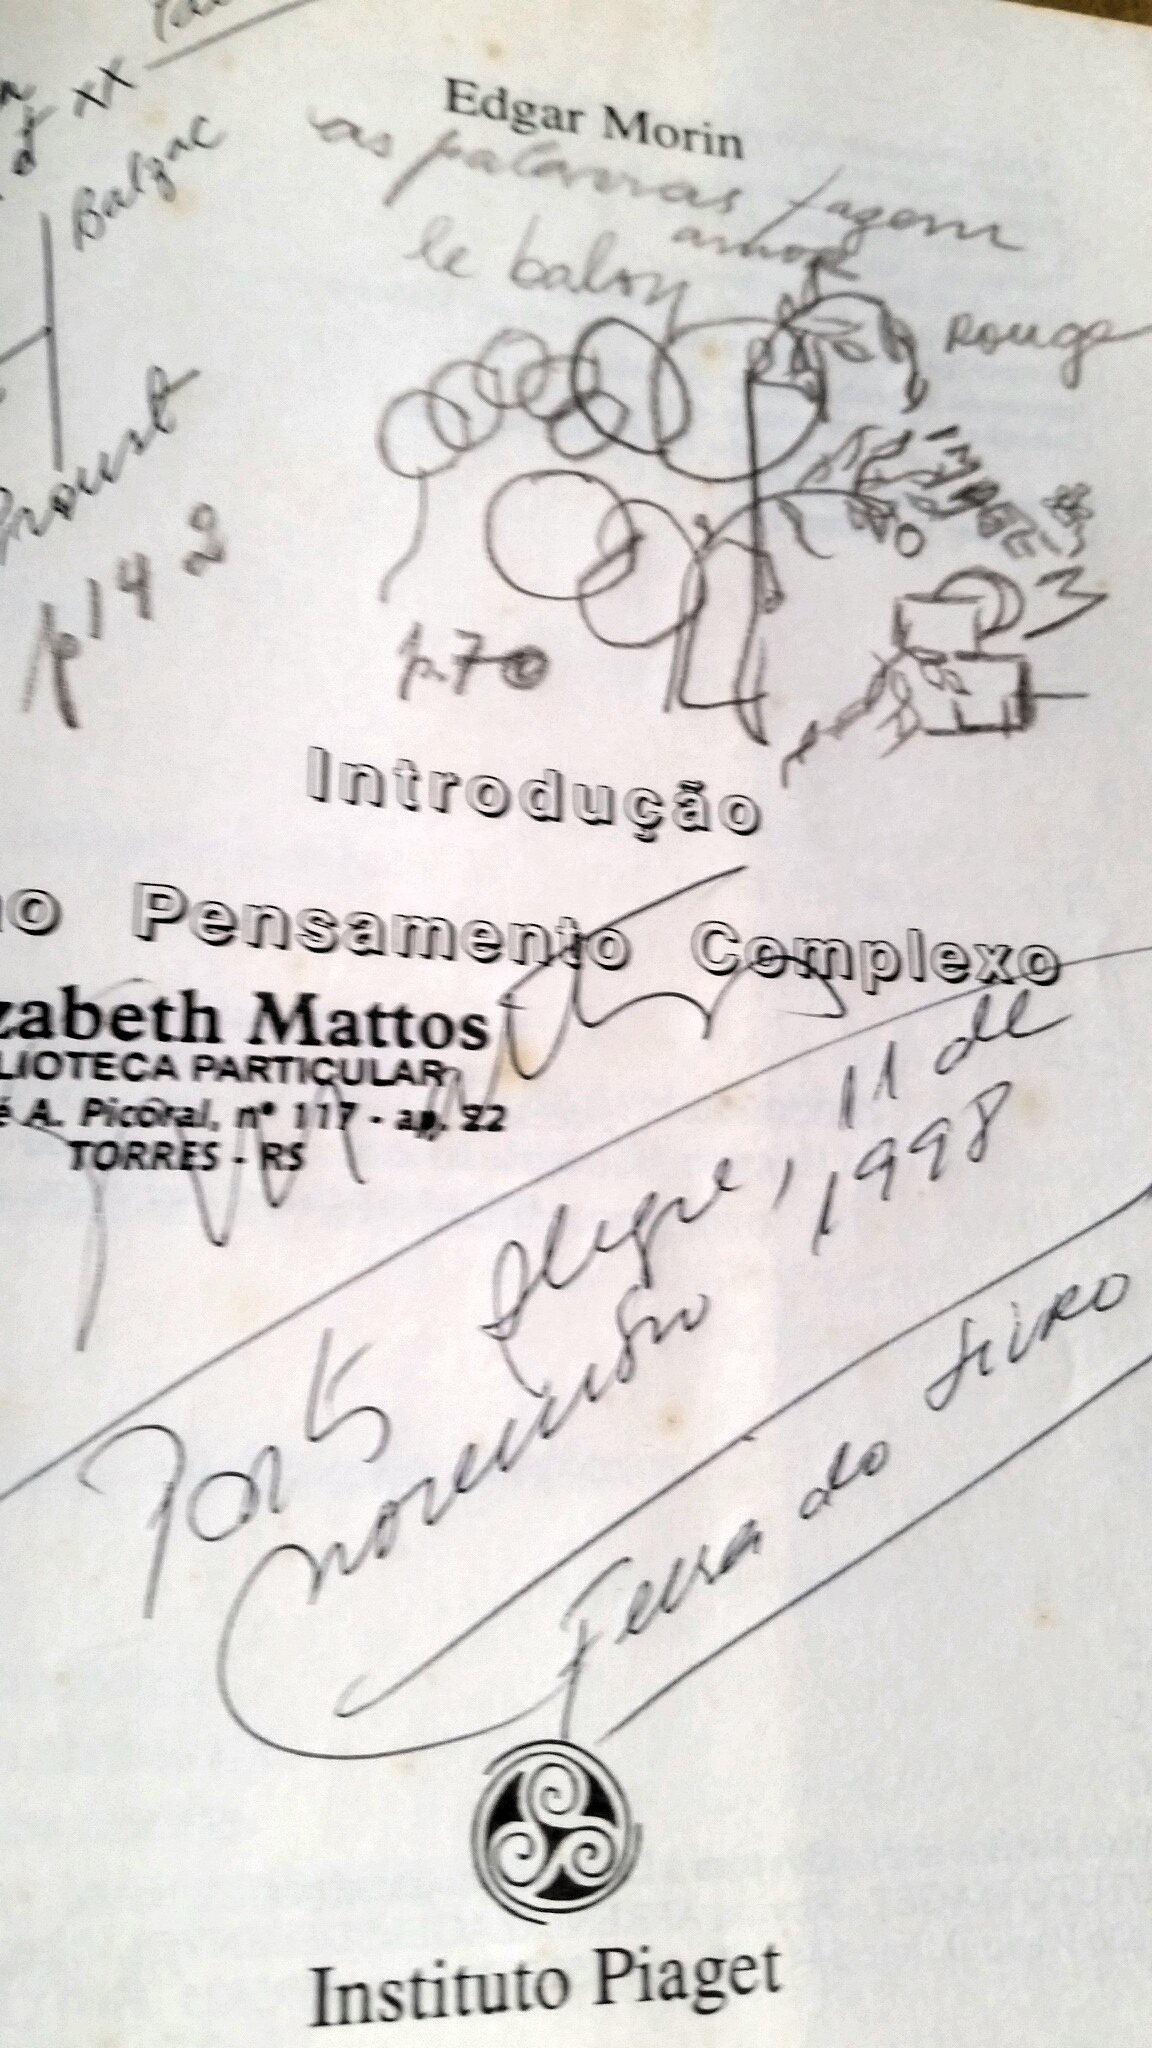 Edgar Morin
xx
Balzac
as palavras fazem
amor
le balon
Rouge
Proust
p 14 2
p.70
Introdução
ao Pensamento Complexo
zabeth Mattos
LIOTECA PARTICULAR
é A. Picoral, nº 117 - ap. 22
TORRES - RS
Porto Alegre, 11 de
novembro 1998
Feira do Livro
Instituto Piaget